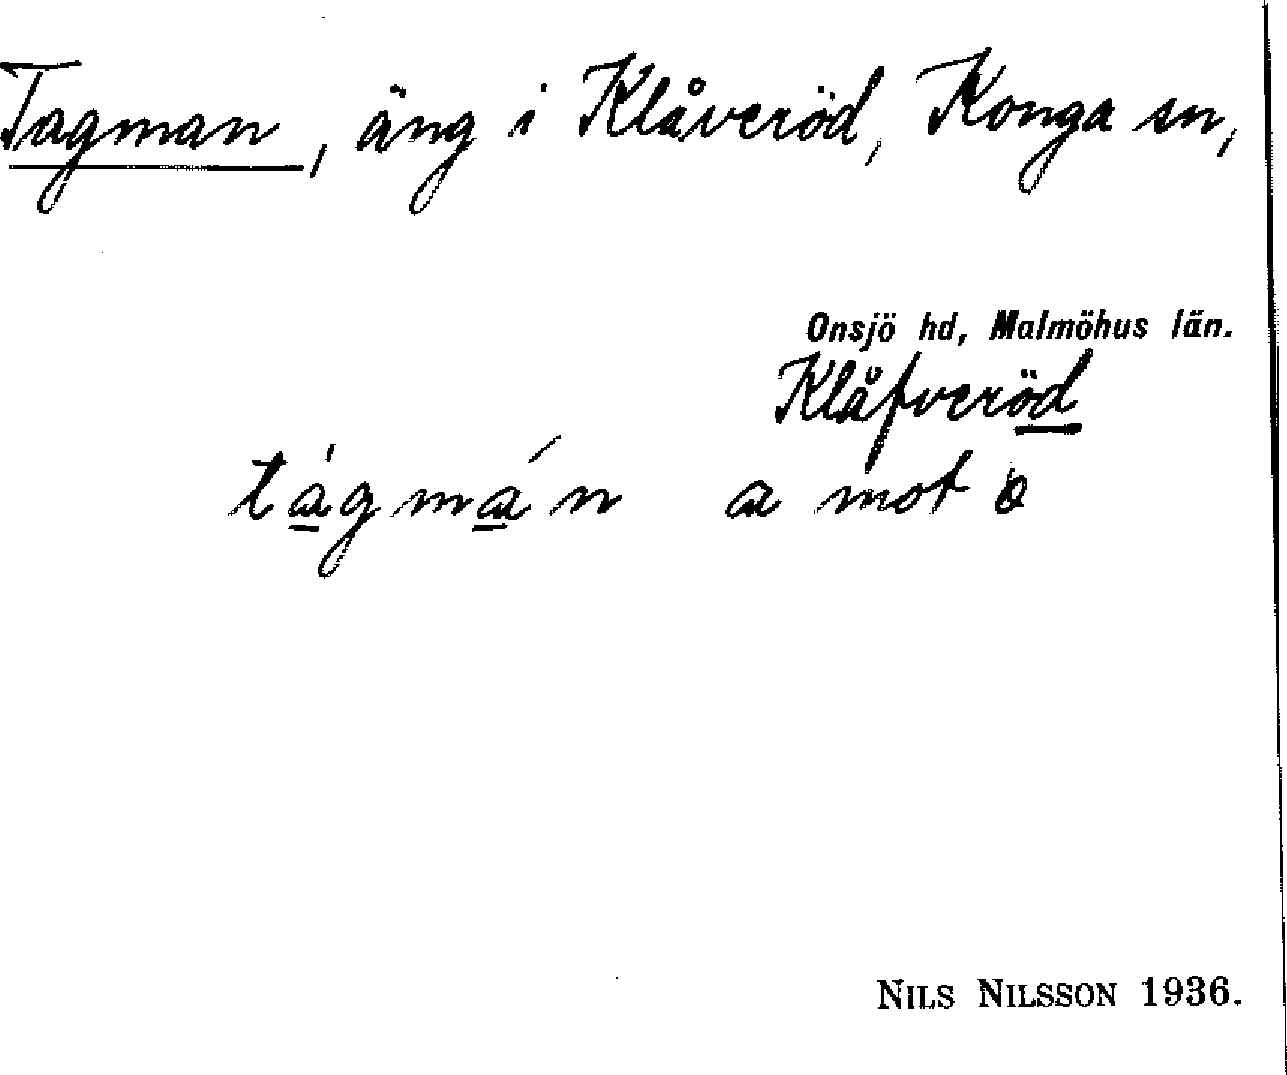 Tagman, äng i Klåveröd, Konga sn,
Onsjö hd, Malmöhus län.
Klåfveröd
tágmán a mot
NILS NILSSON 1936.